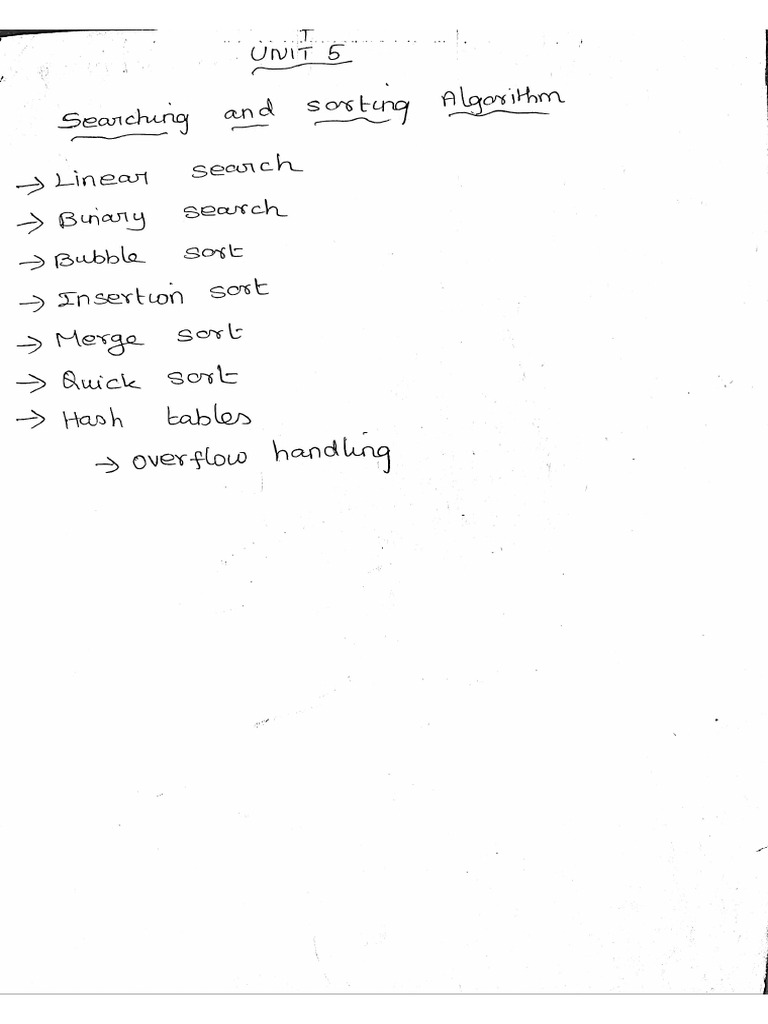 T
UNIT 5
Searching and sorting Algorithm
→ Linear search
→ Binary search
→ Bubble sort
→ Insertion sort
→ Merge sort
→ Quick sort
→ Hash tables
→ overflow handling